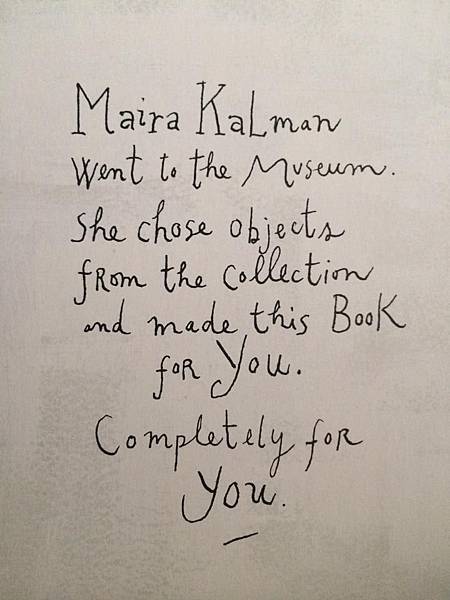 Maira Kalman
Went to the Museum.
She chose objects
from the collection
and made this Book
for You.
Completely for
You.